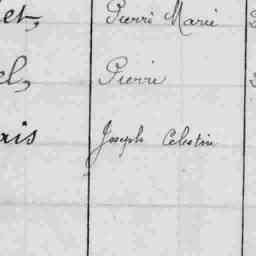 et, Pierre Marie
el, Pierre
ais Joseph Célestin